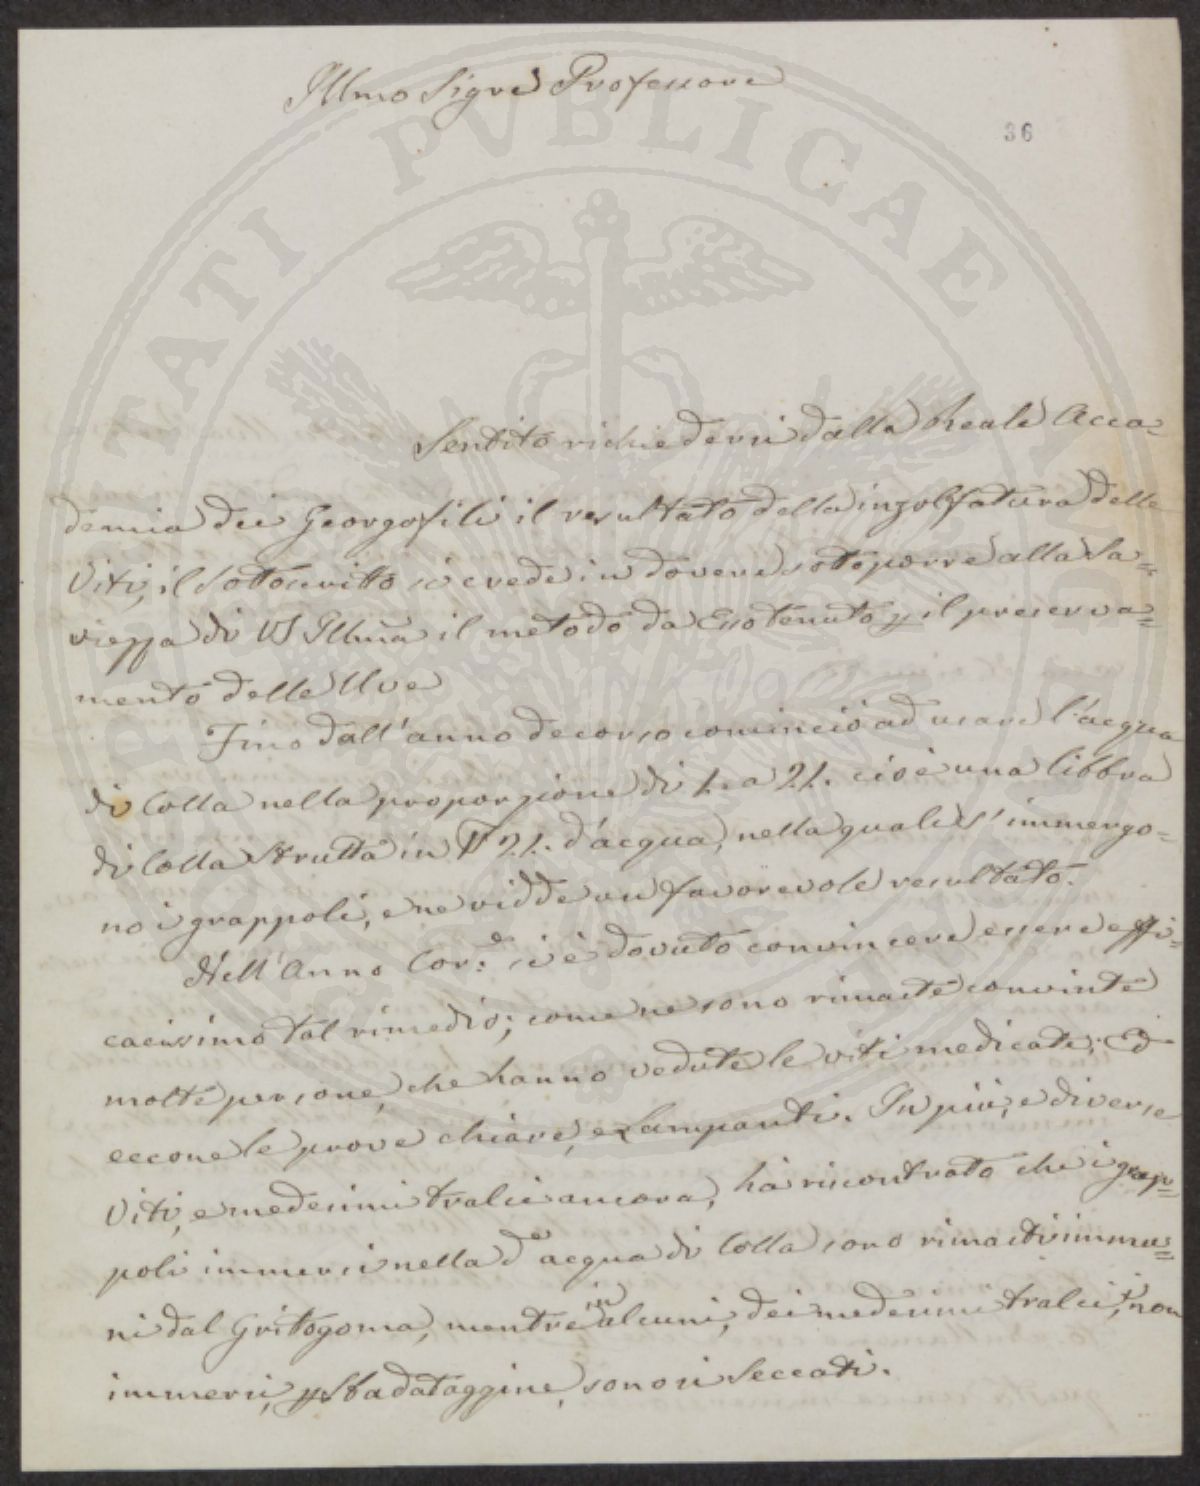 Illmo Sigre Professore
36
Sentito richiedersi dalla Reale Acca-
demia dei Georgofili il resultato della inzolfatura delle
Viti, il Sotoscritto si crede in dovere sotoporre alla Sa=
viezza di VS Illma il metodo da Esso tenuto p il preserva=
mento delle Uve
Fino dall'anno decorso cominciò ad usare l'acqua
di Colla nella proporzione di 1. a 21. cioè una libbra
di Colla strutta in 21. d'acqua, nella quale s'immergo=
no i grappoli, e ne vidde un favorevole resultato.
Nell'Anno Cor.e si è dovuto convincere essere effi=
cacissimo tal rimedio; come ne sono rimaste convinte
molte persone, che hanno vedute le viti medicate; Ed
eccone le prove chiare, e Lampanti. In più, e diverse
Viti, e medesimi tralci ancora, ha riscontrato che i grap=
poli immersi nella da acqua di Colla sono rimasti immu=
ni dal Gritogoma, mentre in alcuni, dei medesimi tralci, non
immersi, p sbadataggine, sonosi Seccati.
PVBLICAE